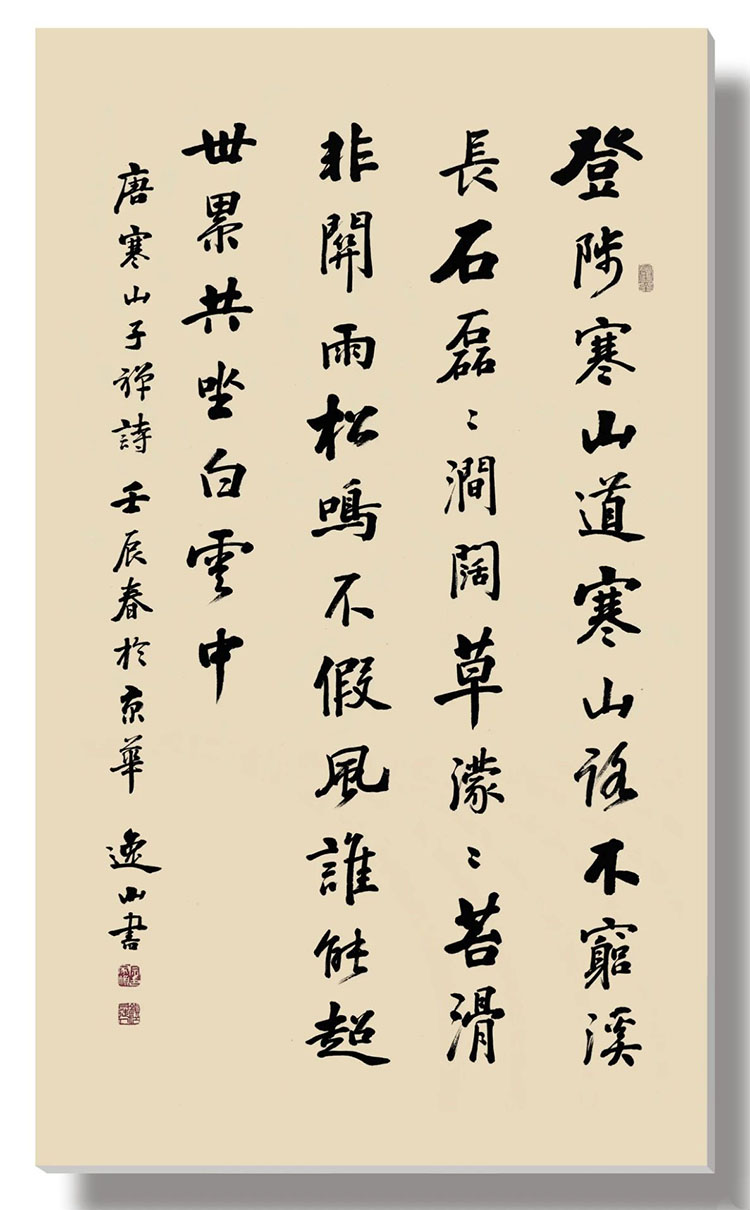 登陟寒山道寒山路不窮溪
長石磊〻澗闊草濛〻苔滑
非關雨松鳴不假風誰能超
世累共坐白雲中
唐寒山子禪詩 壬辰春於京華 逸山書